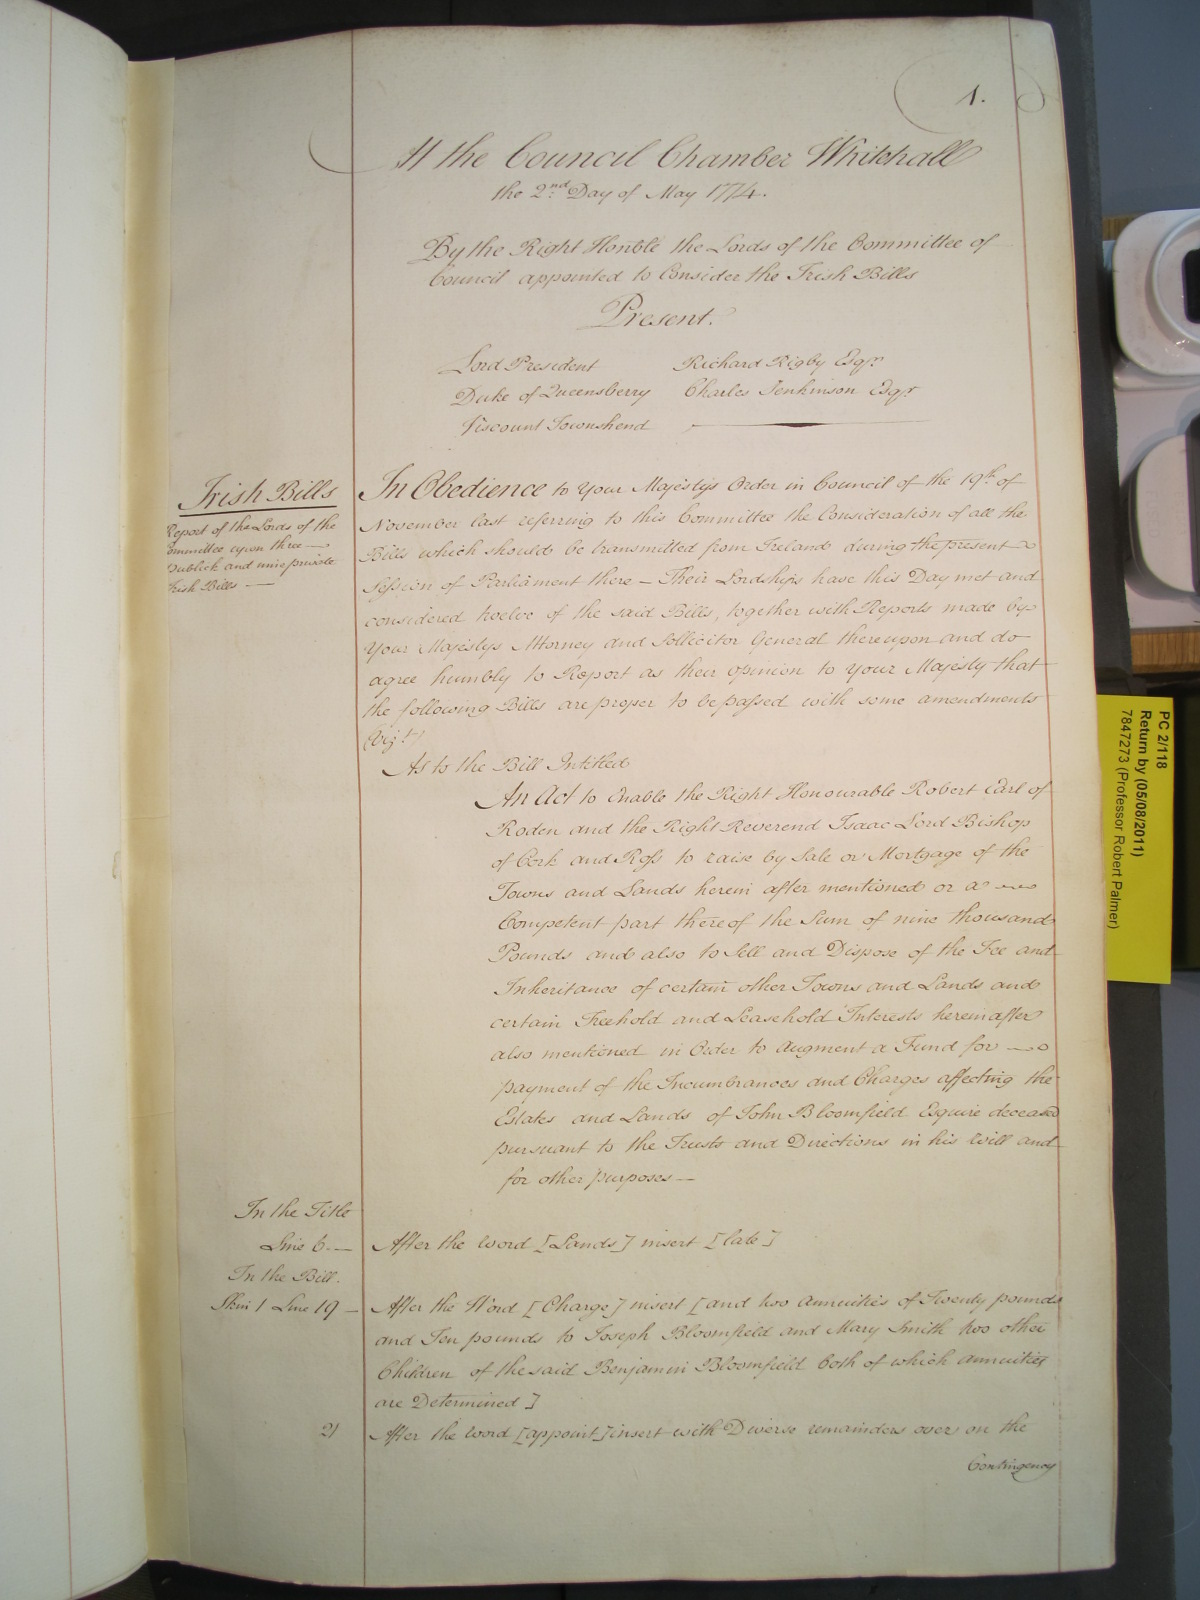 1.
At the Council Chamber Whitehall
the 2nd Day of May 1774.
By the Right Honble the Lords of the Committee of
Council appointed to Consider the Irish Bills
Present.
Lord President Richard Rigby Esqr.
Duke of Queensberry Charles Jenkinson Esqr.
Viscount Townshend
Irish Bills
Report of the Lords of the
Committee upon three
Publick and nine private
Irish Bills
In Obedience to Your Majestys Order in Council of the 19th. of
November last referring to this Committee the Consideration of all the
Bills which should be transmitted from Ireland during the present
Session of Parliament there — Their Lordships have this Day met and
considered twelve of the said Bills, together with Reports made by
Your Majestys Attorney and Sollicitor General thereupon and do
agree humbly to Report as their opinion to Your Majesty that
the following Bills are proper to be passed with some amendments
(Vizt.)
As to the Bill Intitled
An Act to Enable the Right Honourable Robert Earl of
Roden and the Right Reverend Isaac Lord Bishop
of Cork and Ross to raise by Sale or Mortgage of the
Towns and Lands herein after mentioned or a
Competent part thereof the Sum of nine thousand
Pounds and also to Sell and Dispose of the Fee and
Inheritance of certain other Towns and Lands and
certain Freehold and Leasehold Interests hereinafter
also mentioned in Order to Augment a Fund for
payment of the Incumbrances and Charges affecting the
Estates and Lands of John Bloomfield Esquire deceased
pursuant to the Trusts and Directions in his Will and
for other purposes —
In the Title
Line 6. — After the word [Lands] insert [late]
In the Bill.
Skin 1 Line 19 — After the Word [Charge] insert [and two Annuities of Twenty pounds
and Ten pounds to Joseph Bloomfield and Mary Smith two other
Children of the said Benjamin Bloomfield both of which Annuities
are Determined]
21 After the word [appoint] insert with Diverse remainders over on the
Contingency
PC 2/118
Return by (05/08/2011)
7847273 (Professor Robert Palmer)